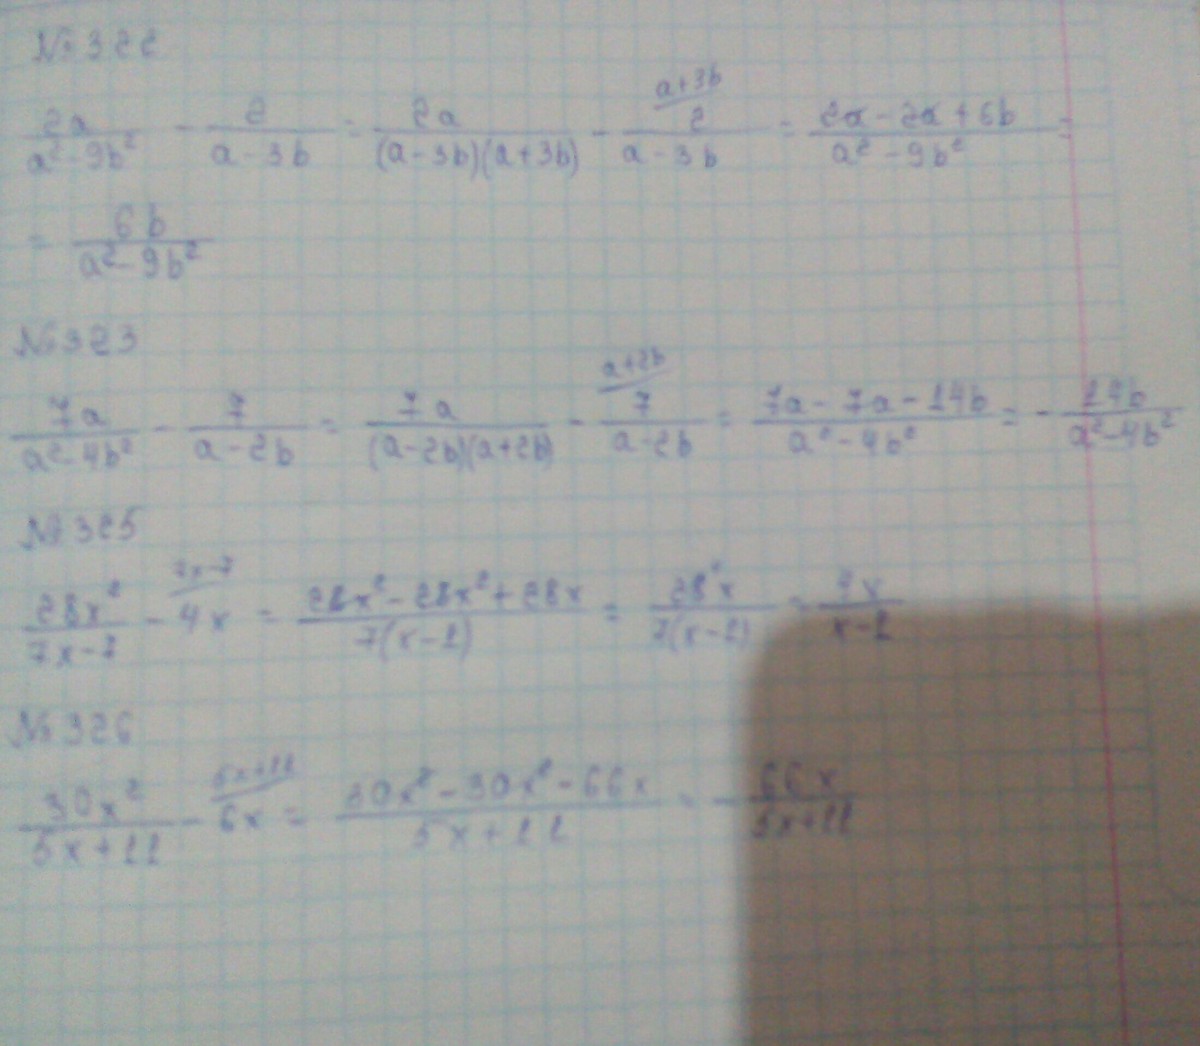 №322
2a/(a²-9b²) - 2/(a-3b) = 2a/((a-3b)(a+3b)) - 2/(a-3b) (a+3b = (2a-2a+6b)/(a²-9b²) =
= 6b/(a²-9b²)
№323
7a/(a²-4b²) - 7/(a-2b) = 7a/((a-2b)(a+2b)) - 7/(a-2b) (a+2b = (7a-7a-14b)/(a²-4b²) = - 14b/(a²-4b²)
№325
28x²/(7x-7) - 4x (7x-7 = (28x²-28x²+28x)/(7(x-1)) = 28x/(7(x-1)) =
№326
30x²/(5x+11) - 6x (5x+11 = (30x²-30x²-66x)/(5x+11) = - 66x/(5x+11)